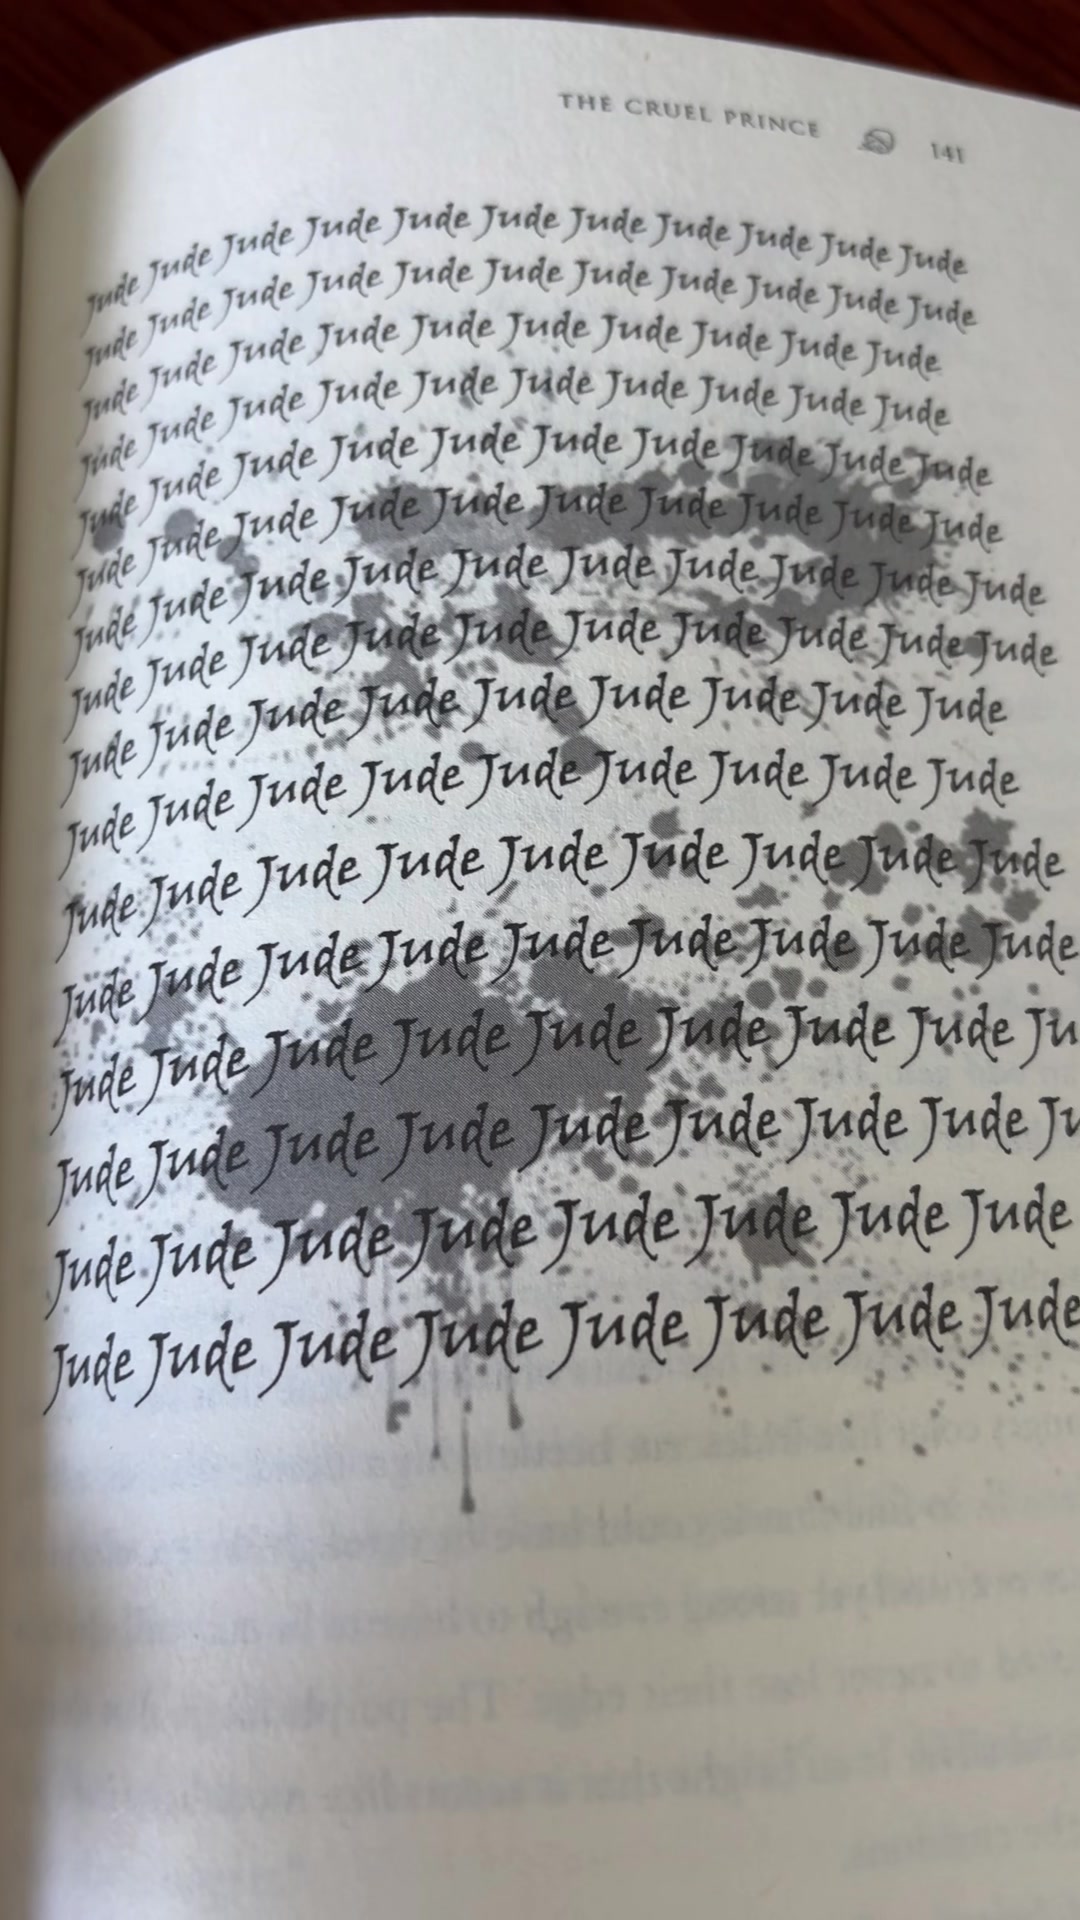 THE CRUEL PRINCE 141
Jude Jude Jude Jude Jude Jude Jude Jude Jude Jude Jude
Jude Jude Jude Jude Jude Jude Jude Jude Jude Jude Jude
Jude Jude Jude Jude Jude Jude Jude Jude Jude Jude
Jude Jude Jude Jude Jude Jude Jude Jude Jude Jude
Jude Jude Jude Jude Jude Jude Jude Jude Jude Jude
Jude Jude Jude Jude Jude Jude Jude Jude Jude Jude
Jude Jude Jude Jude Jude Jude Jude Jude Jude Jude
Jude Jude Jude Jude Jude Jude Jude Jude Jude Jude
Jude Jude Jude Jude Jude Jude Jude Jude Jude
Jude Jude Jude Jude Jude Jude Jude Jude Jude
Jude Jude Jude Jude Jude Jude Jude Jude Jude
Jude Jude Jude Jude Jude Jude Jude Jude Jude
Jude Jude Jude Jude Jude Jude Jude Jude Ju
Jude Jude Jude Jude Jude Jude Jude Jude Ju
Jude Jude Jude Jude Jude Jude Jude Jude
Jude Jude Jude Jude Jude Jude Jude Jude